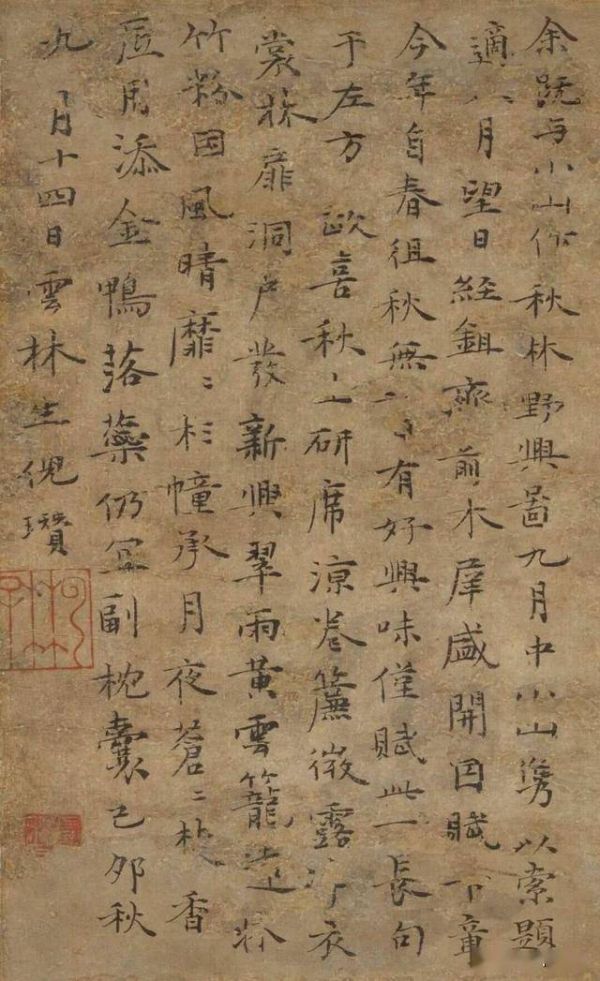 余既与小山作秋林野興啚九月中小山攜以索題
適八月望日經鉏齋前木犀盛開因賦下章
今年自春徂秋無一日有好興味僅賦此一長句
于左方 政喜秋生研席涼卷簾微露衣
裳林扉洞戶發新興翠雨黃雲籠遠牀
竹粉因風晴靡〻杉幢承月夜蒼〻焚香
底用添金鴨落蘂仍宜副枕囊己卯秋
九月十四日雲林生倪瓚